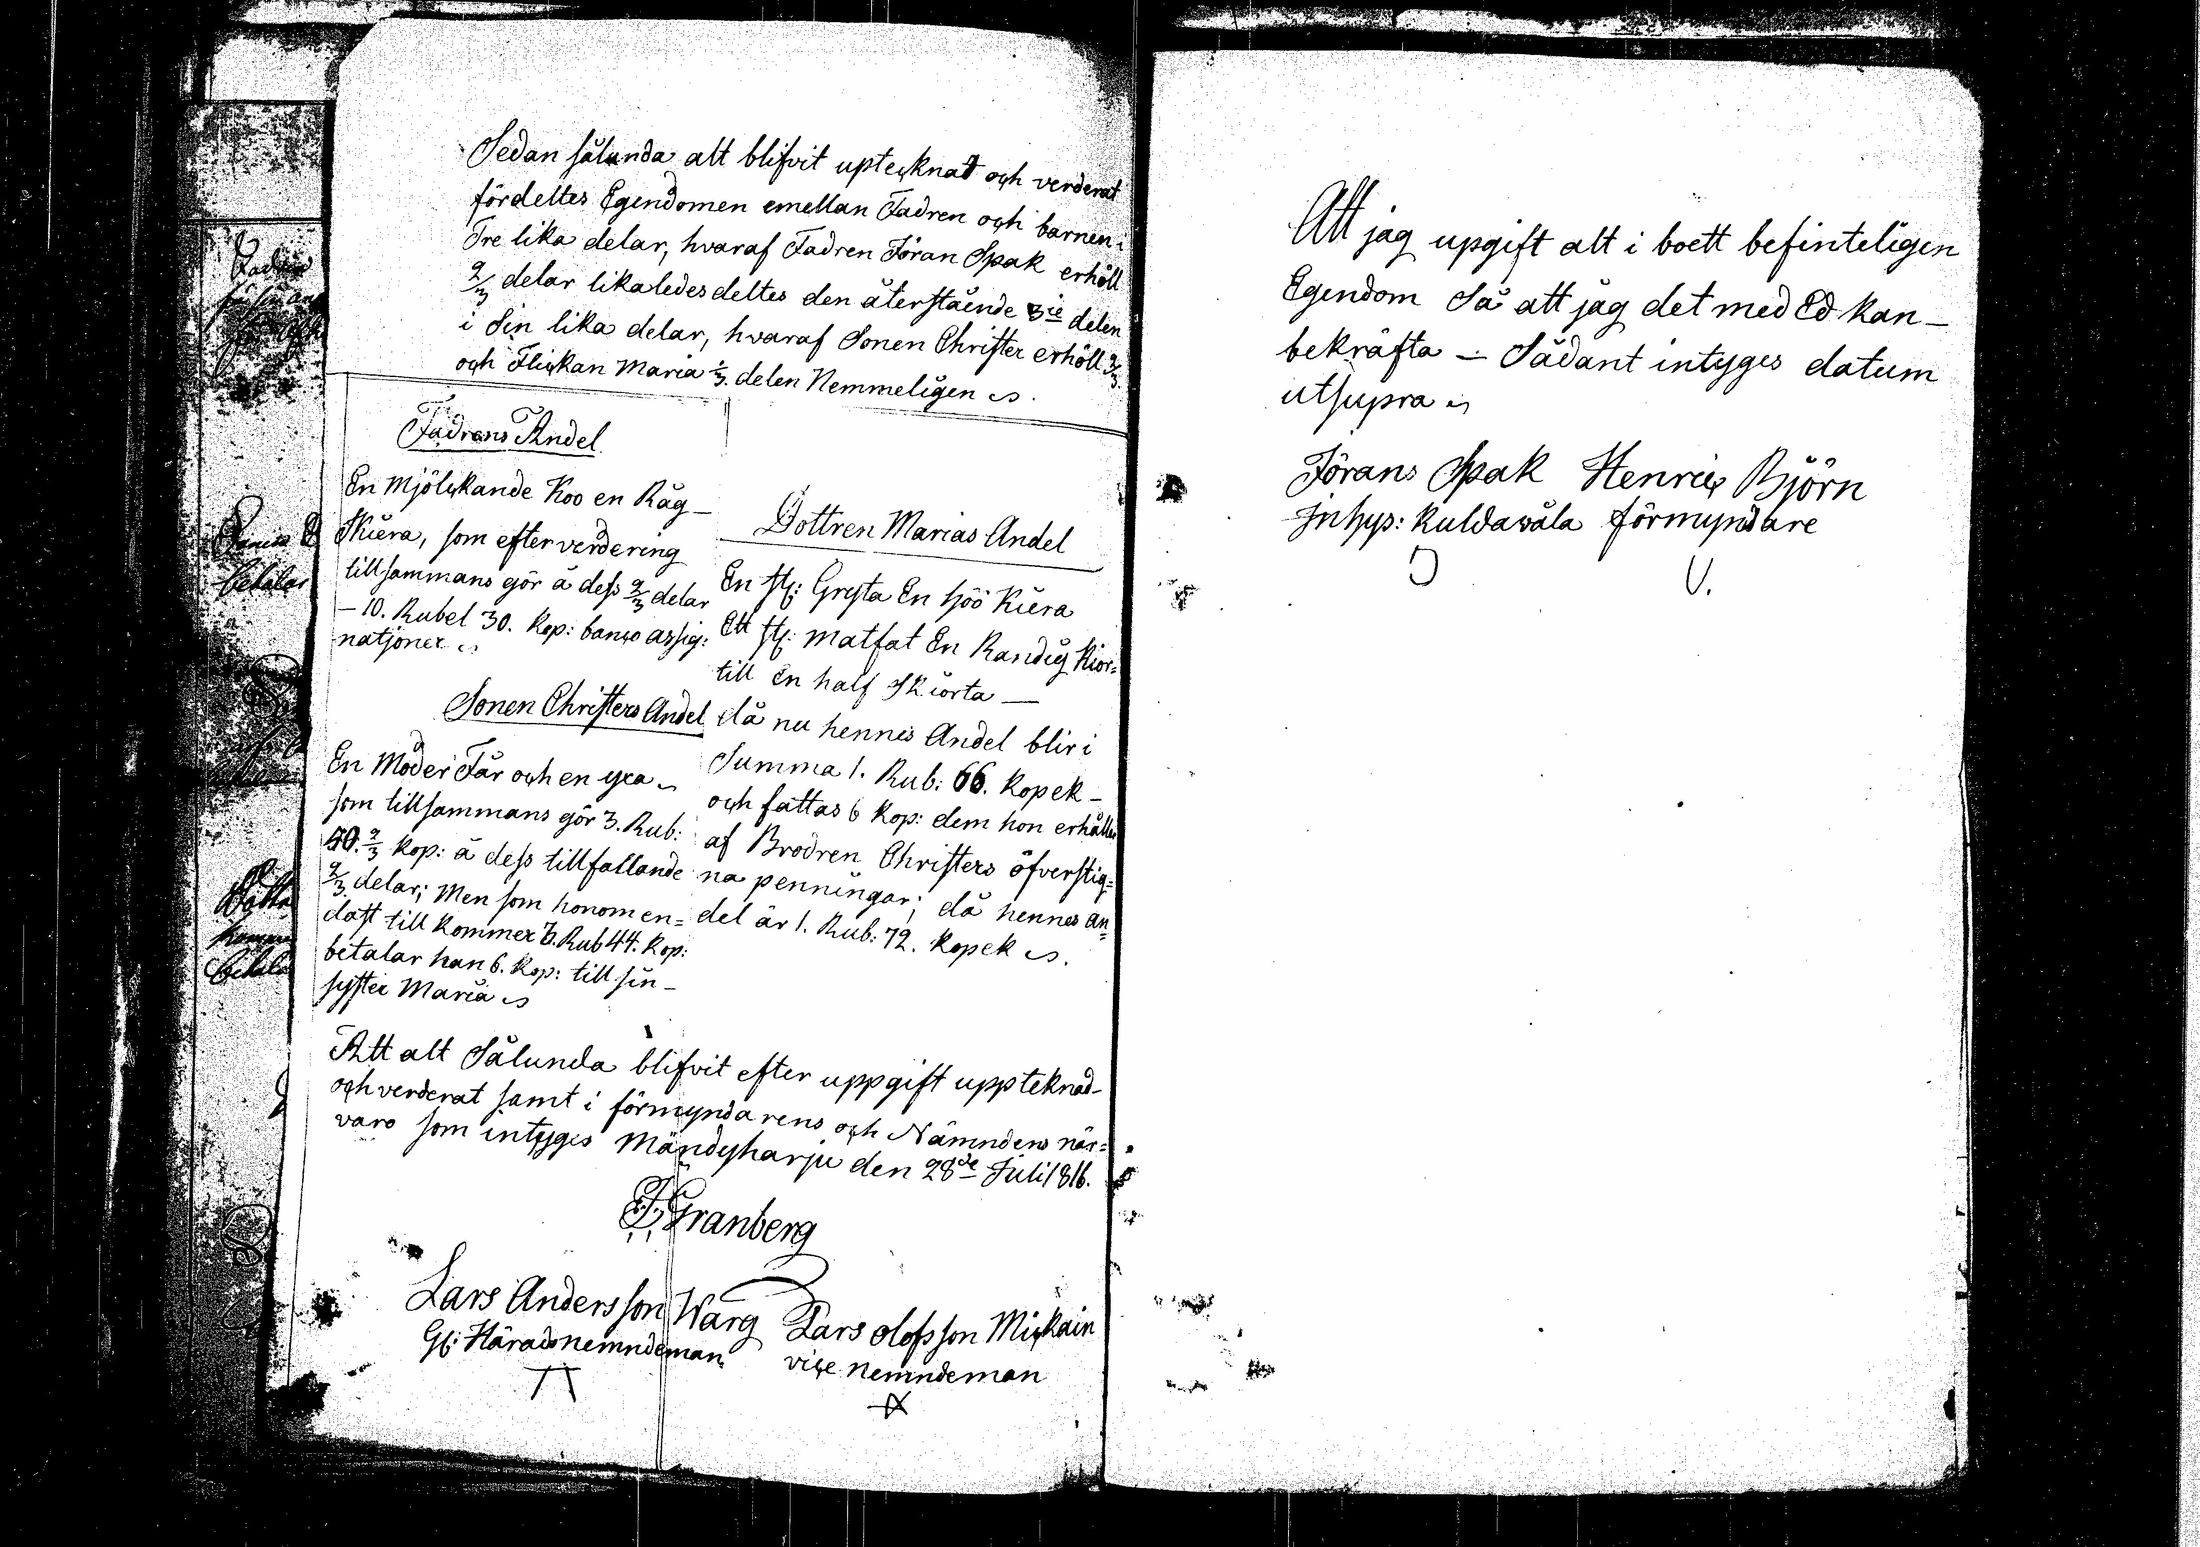 Sedan sålunda alt blifvit uptecknat och verderat
fördeltes Egendomen emellan Fadren och barnen i
Tre lika delar, hvaraf Fadren Jöran Spak erhöll
2/3 delar likaledes deltes den återstående 3ie delen
i Sin lika delar, hvaraf Sonen Christer erhöll 2/3.
och Flickan Maria 1/3. delen Nemmeligen
Fadrens Andel
En Mjölckande Koo en Råg-
Skiera, som efter verdering
tillsammans gör à dess 2/3 delar
- 10. Rubel 30. Kop: banco assig:
nationer
Sonen Christers Andel
En Moder Får och en yxa
som tillsammans gör 3. Rub:
50. 2/3 kop: à dess tillfallande
2/3. delar; Men som honom en=
dast till kommer 3. Rub 44. kop:
betalar han 6. kop: till sin-
syster Maria
Dottren Marias Andel
En st: Gryta En höö Kiera
Ett st: matfat En Randig Kior=
till En half Skiorta -
då nu hennes Andel blir i
Summa 1. Rub: 66. kopek -
och fattas 6 kop: dem hon erhåller
af Brodren Christers öfverstig=
na penningar; då hennes an=
del är 1. Rub: 72. kopek
Att alt Sålunda blifvit efter uppgift uppteknad-
och verderat samt i förmyndarens och Nämndens när=
varo som intyges Mändyharju den 28de Juli 1816.
Granberg
Lars Andersson Warg
Häradsnemndeman
Lars Olofsson Mickain
vice nemndeman
Att jag upgift alt i boett befinteligen
Egendom Så att jag det med Ed kan-
bekräfta - Sådant intyges datum
utsupra
Jörans Spak Henric Björn
inhys: Kuldawala förmyndare